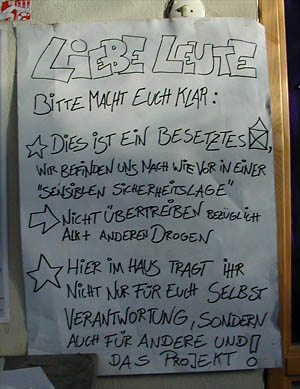 LIEBE LEUTE
BITTE MACHT EUCH KLAR:
DIES IST EIN BESETZTES ,
WIR BEFINDEN UNS NACH WIE VOR IN EINER
"SENSIBLEN SICHERHEITSLAGE"
NICHT ÜBERTREIBEN BEZÜGLICH
ALK + ANDEREN DROGEN
HIER IM HAUS TRAGT IHR
NICHT NUR FÜR EUCH SELBST
VERANTWORTUNG, SONDERN
AUCH FÜR ANDERE UND
DAS PROJEKT!